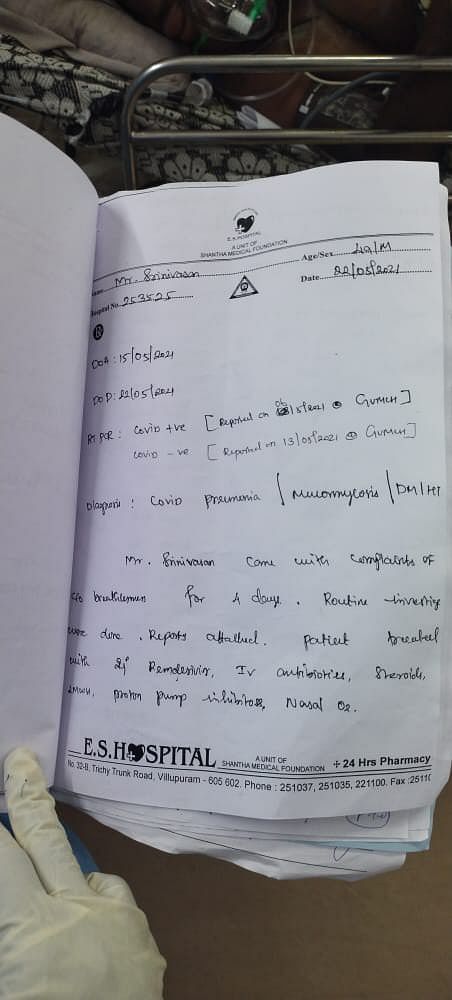 E.S.HOSPITAL
A UNIT OF
SHANTHA MEDICAL FOUNDATION
Name Mr. Srinivasan Age/Sex 49/M
Hospital No. 253525 Date 22/05/2021
R
DOA : 15/05/2021
DOD : 22/05/2021
RT PCR : Covid +ve [Reported on 06/5/2021 @ GVMCH]
Covid -ve [Reported on 13/05/2021 @ GVMCH]
Diagnosis : Covid pneumonia / Mucomycosis / DM/HT
Mr. Srinivasan came with complaints of
c/o breathlessness for 4 days. Routine investig
were done. Reports attached. patient treated
with Inj. Remdesivir, IV antibiotics, Steroids,
LMWH, proton pump inhibitors, Nasal O2.
E.S.HOSPITAL A UNIT OF SHANTHA MEDICAL FOUNDATION + 24 Hrs Pharmacy
No. 32-B, Trichy Trunk Road, Villupuram - 605 602. Phone : 251037, 251035, 221100. Fax :2511